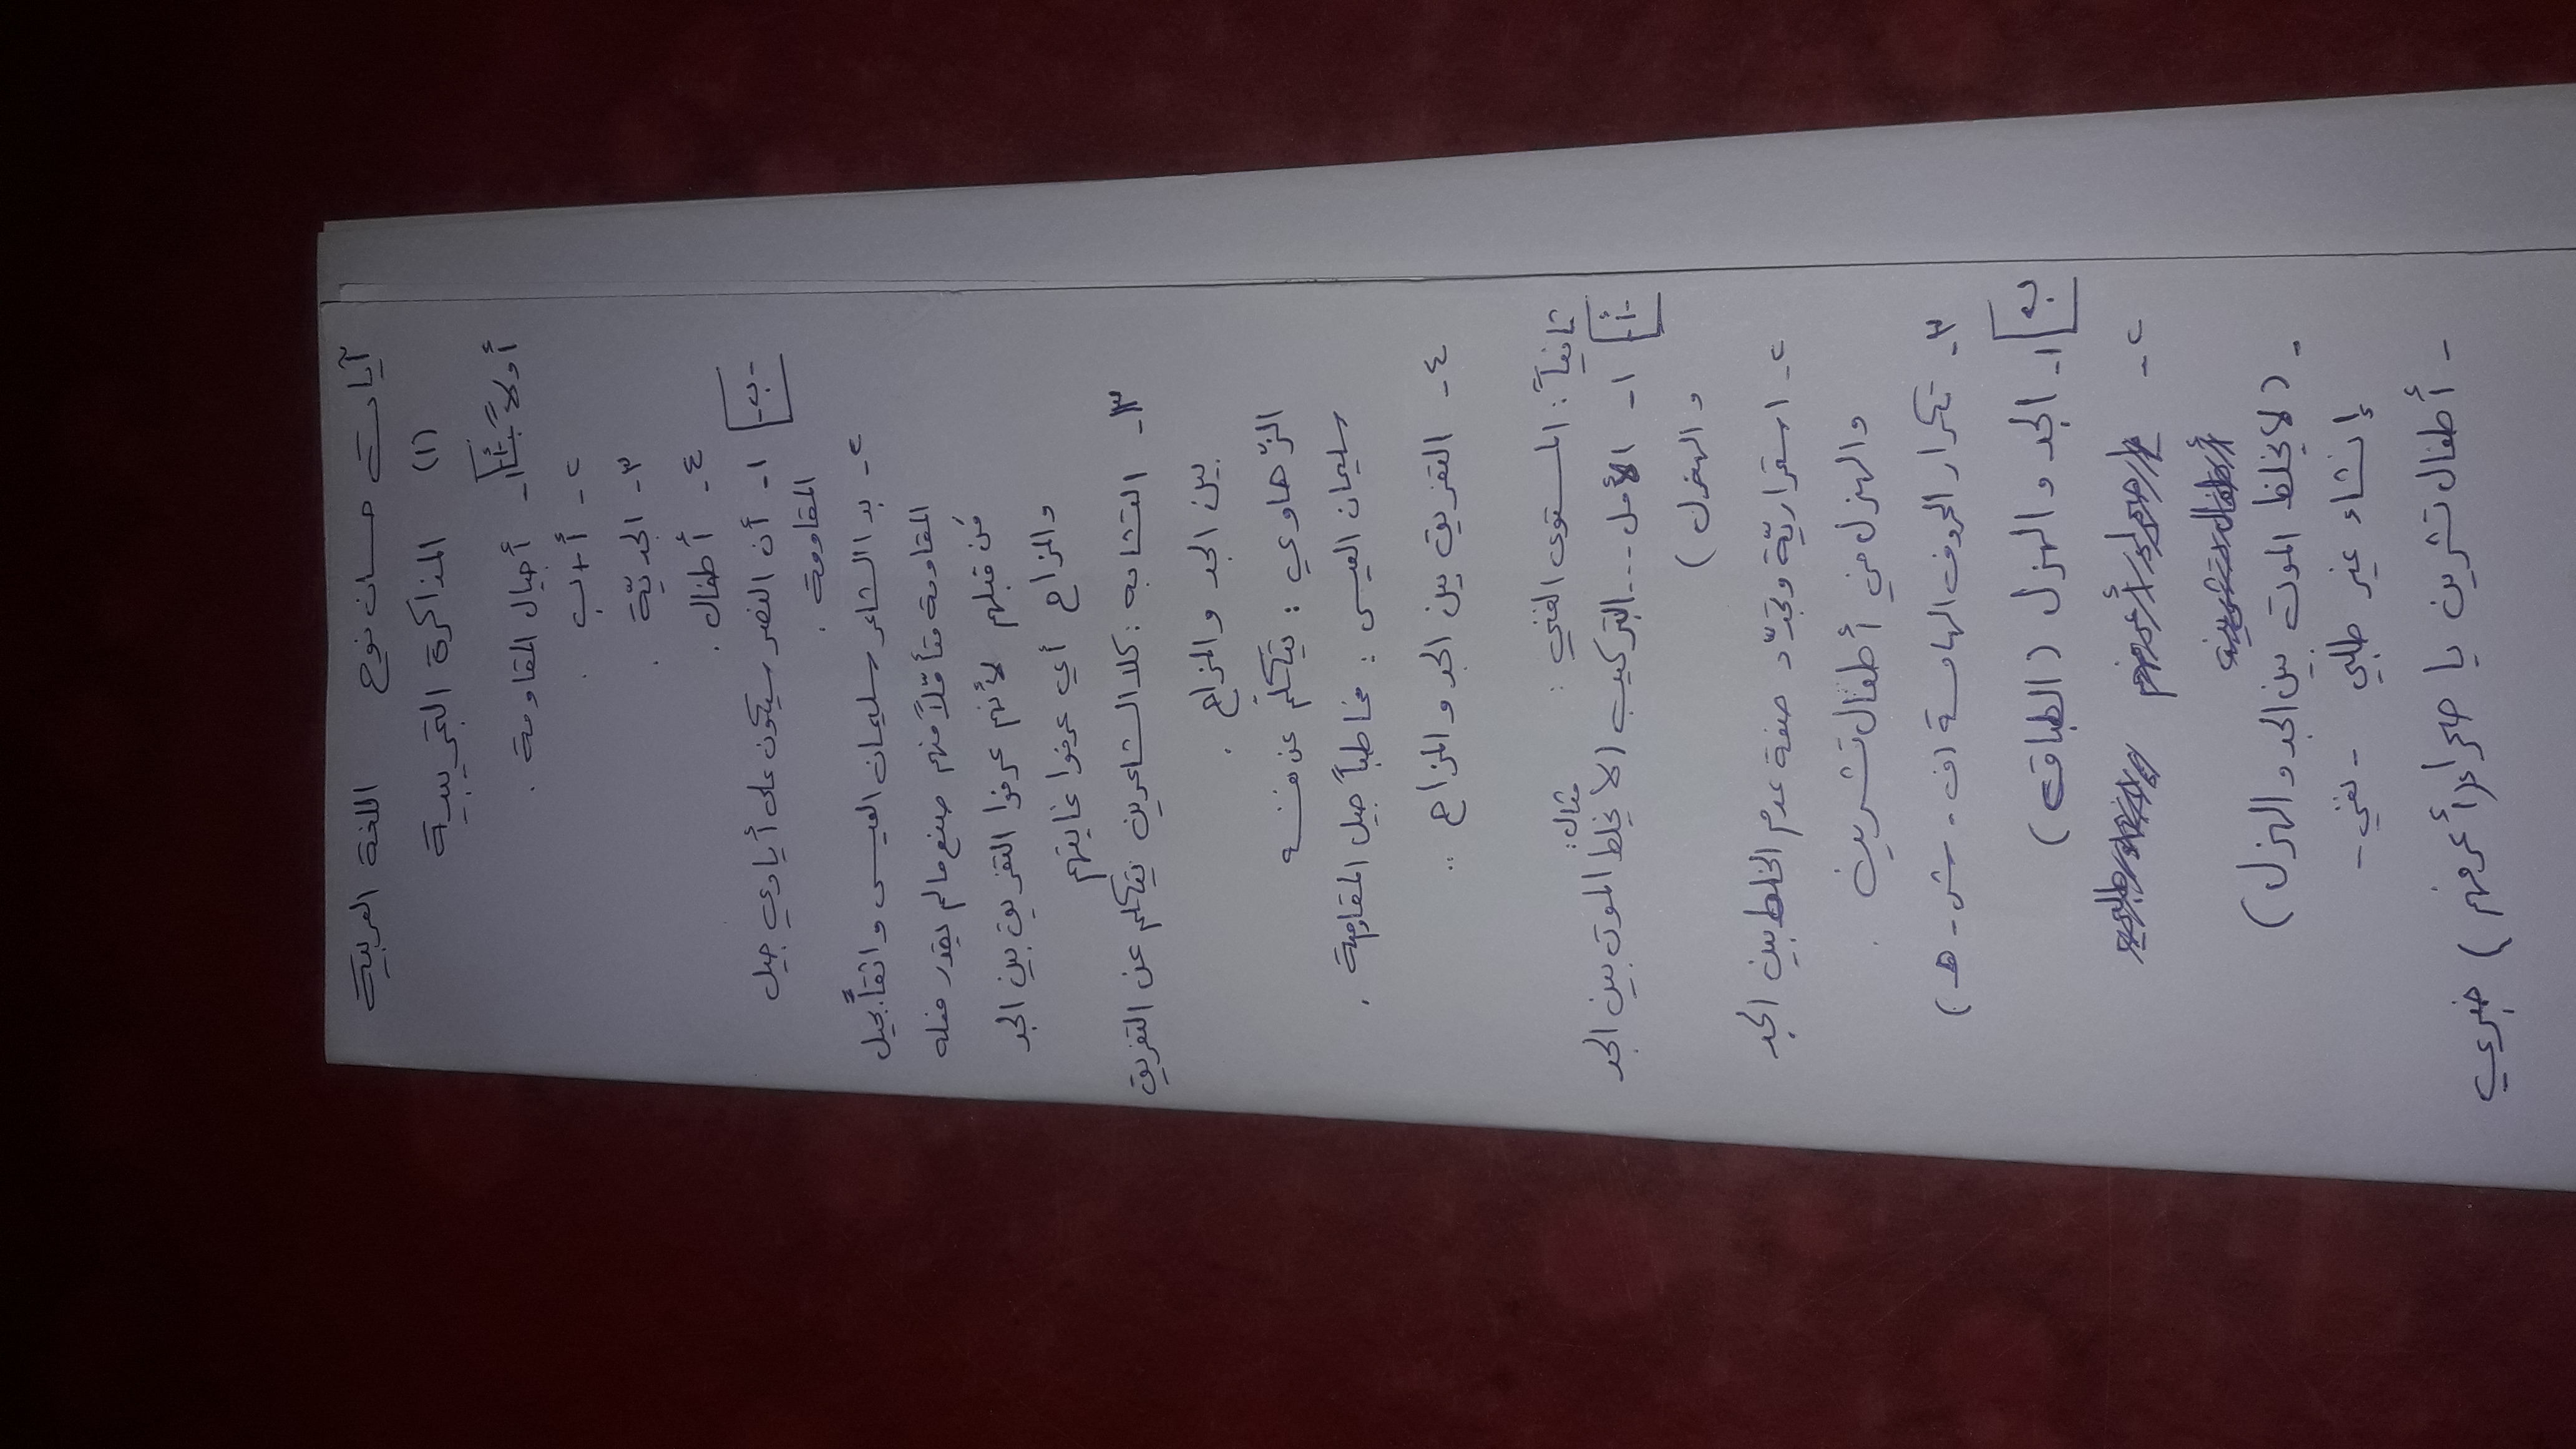 آيات حسان نوح    اللغة العربية
(١) المذاكرة التجريبية
أولاً: -أ-
١- أجيال المقاومة.
٢- أ+ب.
٣- الجديّة.
٤- أطفال.
-ب-
١- أن النصر سيكون على أيادي جيل
المقاومة.
٢- بدا الشاعر سليمان العيسى واثقاً بجيل
المقاومة متأمّلاً منهم صنع مالم يقدر فعله
مَن قبلهم لأنهم عرفوا التفريق بين الجد
والمزاح أي عرفوا غايتهم
٣- التشابه: كلا الشاعرين يتكلم عن التفريق
بين الجد والمزاح.
الزّهاوي: يتكلّم عن نفسه
سليمان العيسى: مخاطباً جيل المقاومة.
٤- التفريق بين الجد والمزاح..
ثانياً: المستوى الفني:
-أ-
مثال:
١- الأمل... التركيب (لا يخلط الموت بين الجد
والهزل)
٢- استمراريّة وتجدّد صفة عدم الخلط بين الجد
والهزل في أطفال تشرين.
٣- تكرار الحروف الهامسة (ف - ش - هـ)
ب
١- الجد والهزل (الطباق)
٢-
- (لا يخلط الموت بين الجد والهزل)
إنشاء غير طلبي - نفي -
- أطفال تشرين يا صحراء أعرفهم) خبري